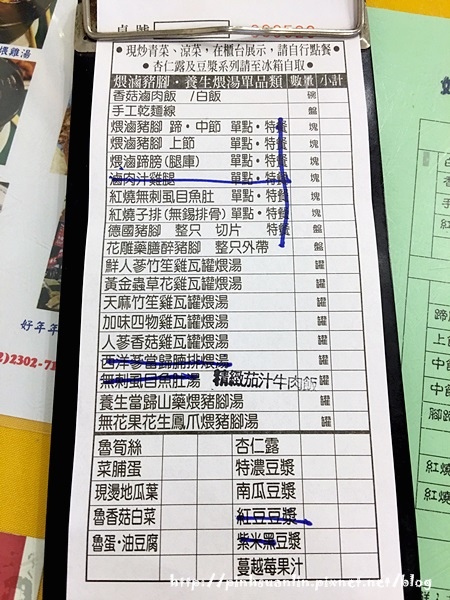 桌號
• 現炒青菜、涼菜，在櫃台展示，請自行點餐 •
• 杏仁露及豆漿系列請至冰箱自取 •
煨滷豬腳・養生煨湯單品類 數量 小計
香菇滷肉飯 /白飯 碗
手工乾麵線 盤
煨滷豬腳 蹄・中節 單點・特餐 塊
煨滷豬腳 上節 單點・特餐 塊
煨滷蹄膀(腿庫) 單點・特餐 塊
滷肉汁雞腿 單點・特餐 塊
紅燒無刺虱目魚肚 單點・特餐 塊
紅燒子排(無錫排骨) 單點・特餐 塊
德國豬腳 整只 切片 特餐 盤
花雕藥膳醉豬腳 整只外帶 盤
鮮人蔘竹笙雞瓦罐煨湯 罐
黃金蟲草花雞瓦罐煨湯 罐
天麻竹笙雞瓦罐煨湯 罐
加味四物雞瓦罐煨湯 罐
人蔘香菇雞瓦罐煨湯 罐
西洋蔘當歸腩排煨湯 罐
無刺虱目魚肚湯 精緻茄汁牛肉飯
養生當歸山藥煨豬腳湯 罐
無花果花生鳳爪煨豬腳湯 罐
魯筍絲 杏仁露
菜脯蛋 特濃豆漿
現燙地瓜葉 南瓜豆漿
魯香菇白菜 紅豆豆漿
魯蛋・油豆腐 紫米黑豆漿
蔓越莓果汁
煨雞湯
好年年
2)2302-71
蹄
上節
中節
中節
腳
紅燒
紅燒
http://pinhsuanlin.pixnet.net/blog